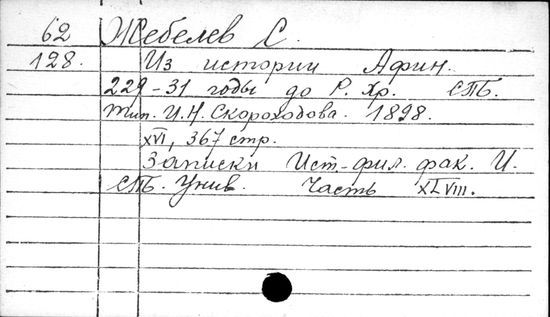 62 Жебелев С.
128. Из истории Афин.
229-31 годы до Р. Хр. СПб.
тип. И. Н. Скороходова. 1898.
XVI, 367 стр.
Записки Ист-фил. фак. И.
СПб. Унив. Часть XLVIII.